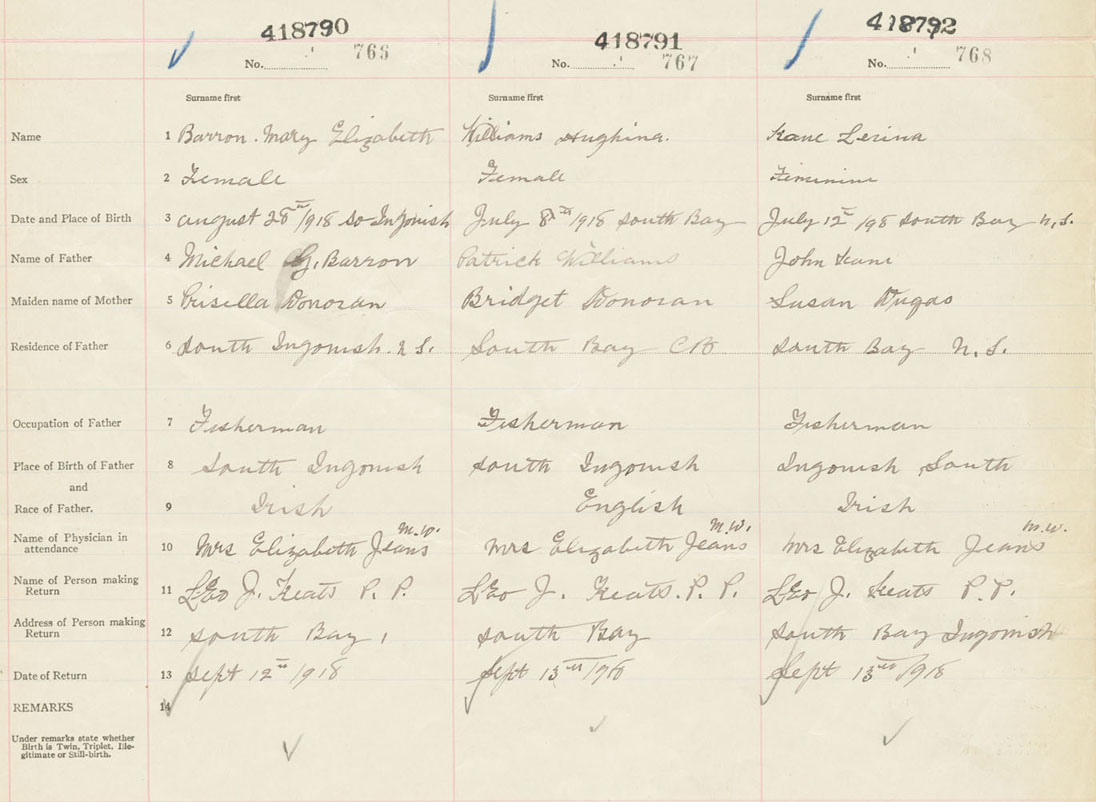 418790 418791 418792
No. 766 No. 767 No. 768
Surname first Surname first Surname first
Name 1 Barron. Mary Elizabeth Williams Hughina. Kane Lerina
Sex 2 Female Female Feminine
Date and Place of Birth 3 August 28th/1918 So Ingonish July 8th/1918 South Bay July 12th 198 South Bay N.S.
Name of Father 4 Michael G. Barron Patrick Williams John Kane
Maiden name of Mother 5 Prisella Donovan Bridget Donovan Susan Dugas
Residence of Father 6 South Ingonish. N S. South Bay CB South Bay N. S.
Occupation of Father 7 Fisherman Fisherman Fisherman
Place of Birth of Father 8 South Ingonish South Ingonish Ingonish South
and
Race of Father. 9 Irish English Irish
Name of Physician in attendance 10 Mrs Elizabeth Jeans M.W. Mrs Elizabeth Jeans M.W. Mrs Elizabeth Jeans M.W.
Name of Person making Return 11 Leo J. Keats P. P. Leo J. Keats. P. P. Leo J. Keats P.P.
Address of Person making Return 12 South Bay, South Bay South Bay Ingonish
Date of Return 13 Sept 12th/1918 Sept 13th/1918 Sept 13th/1918
REMARKS 14
Under remarks state whether
Birth is Twin, Triplet, Ille-
gitimate or Still-birth.